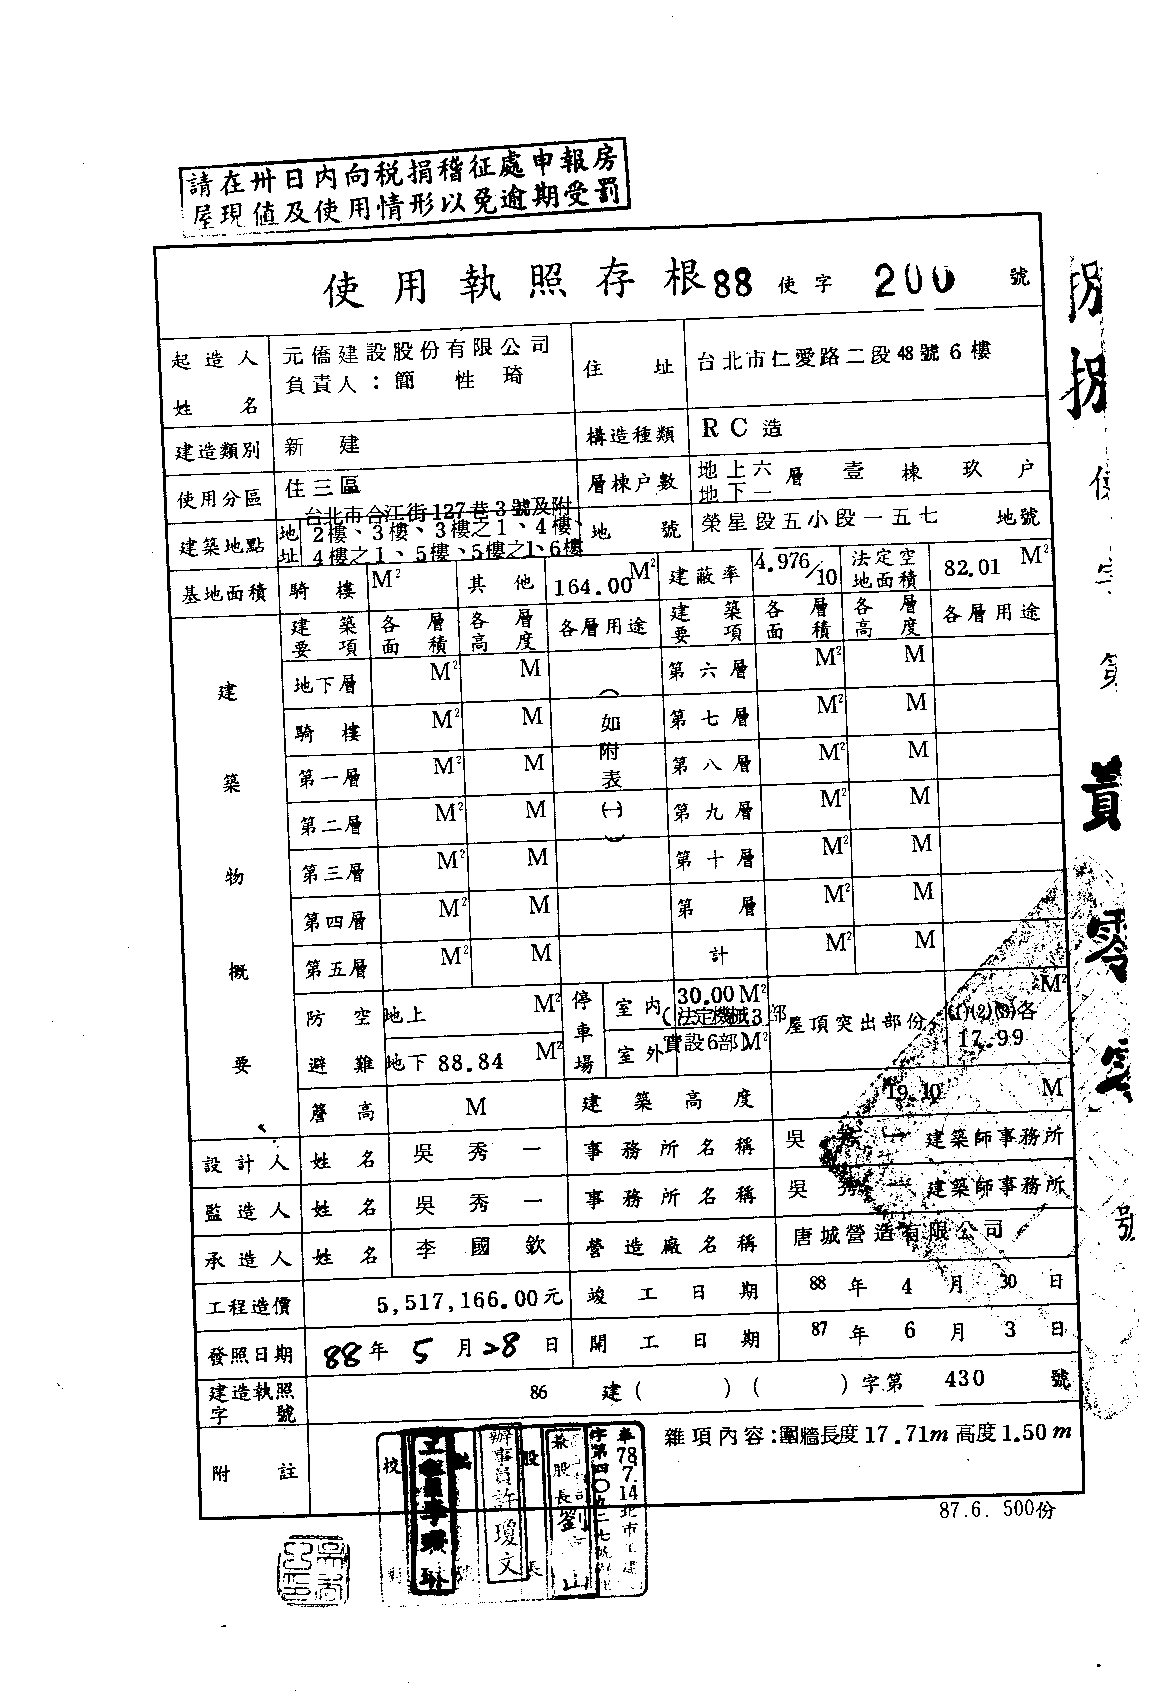 請在卅日內向稅捐稽征處申報房
屋現值及使用情形以免逾期受罰
使用執照存根88 使字 200 號
起造人姓名 元僑建設股份有限公司 負責人：簡性琦 住址 台北市仁愛路二段48號6樓
建造類別 新建 構造種類 RC造
使用分區 住三區 層棟户數 地上六 地下一 層 壹 棟 玖 户
建築地點 地址 台北市合江街127巷3號及附
2樓、3樓、3樓之1、4樓、
4樓之1、5樓、5樓之1、6樓
地號 榮星段五小段一五七 地號
基地面積 騎樓 M² 其他 164.00M² 建蔽率 4.976/10 法定空地面積 82.01 M²
建築物概要
建築要項 各層面積 各層高度 各層用途 建築要項 各層面積 各層高度 各層用途
地下層 M² M 第六層 M² M
騎樓 M² M 第七層 M² M
第一層 M² M 第八層 M² M
第二層 M² M 第九層 M² M
第三層 M² M 第十層 M² M
第四層 M² M 第 層 M² M
第五層 M² M 計 M² M
（如附表㈠）
防空避難 地上 M² 地下 88.84 M²
停車場 室內 30.00M² (法定機械3部
室外 實設6部) M²
屋頂突出部份 (1)(2)(3)各 17.99 M²
簷高 M 建築高度 19.10 M
設計人 姓名 吳秀一 事務所名稱 吳秀一建築師事務所
監造人 姓名 吳秀一 事務所名稱 吳秀一建築師事務所
承造人 姓名 李國欽 營造廠名稱 唐城營造有限公司
工程造價 5,517,166.00元 竣工日期 88年4月30日
發照日期 88年5月28日 開工日期 87年6月3日
建造執照字號 86 建( )( )字第 430 號
附註 雜項內容：圍牆長度17.71m高度1.50m
87.6. 500份
捌捌使字第貳零零號
辦事員許瓊文
78.7.14北市工建
字第四〇